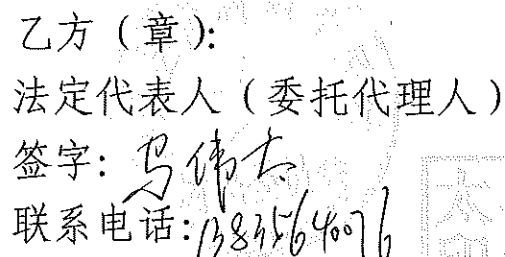 乙方（章）:
法定代表人（委托代理人）
签字: 马伟太
联系电话: 13835640076
太
印